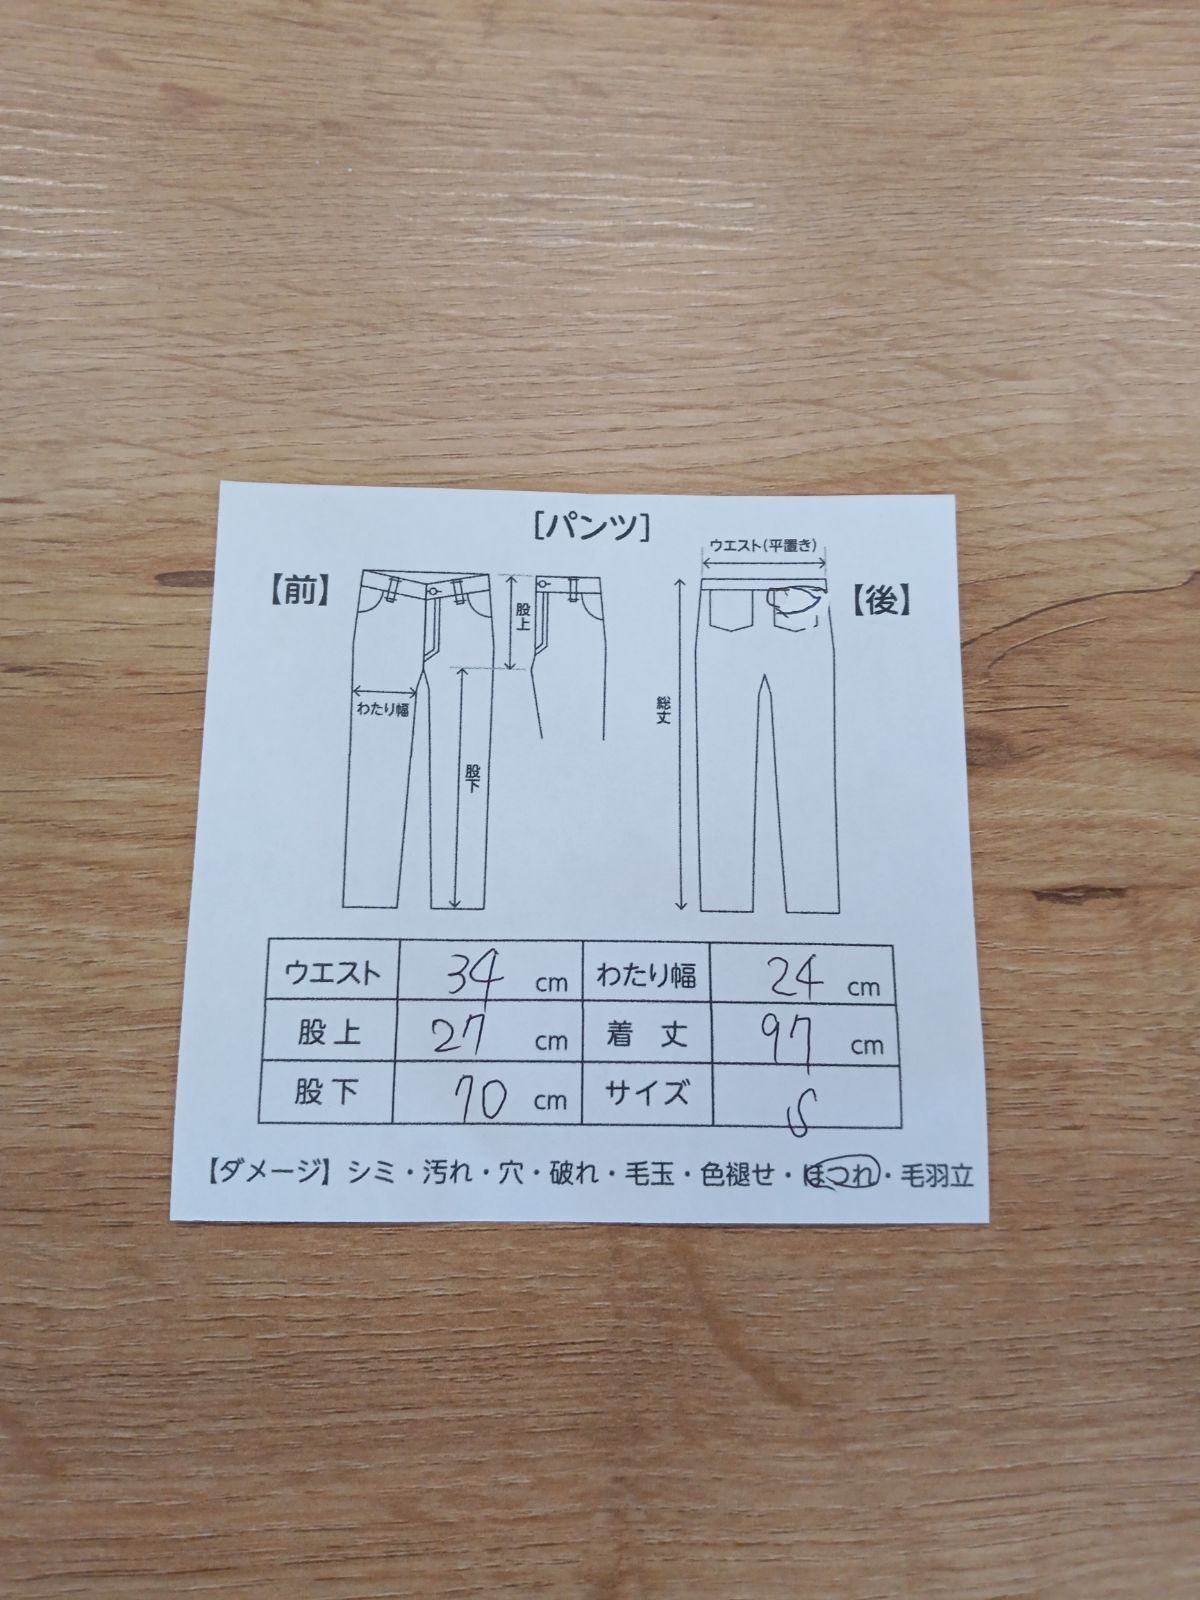 [パンツ]
ウエスト(平置き)
【前】
【後】
股上
わたり幅
股下
総丈
ウエスト 34 cm わたり幅 24 cm
股上 27 cm 着丈 97 cm
股下 70 cm サイズ S
【ダメージ】シミ・汚れ・穴・破れ・毛玉・色褪せ・ほつれ・毛羽立